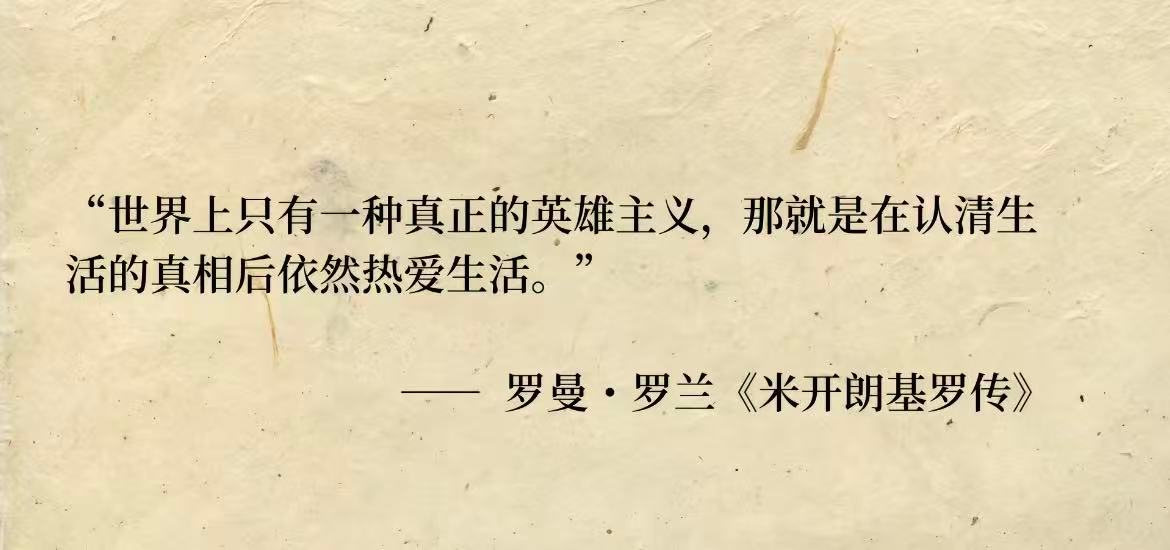 “世界上只有一种真正的英雄主义，那就是在认清生
活的真相后依然热爱生活。”
—— 罗曼·罗兰《米开朗基罗传》